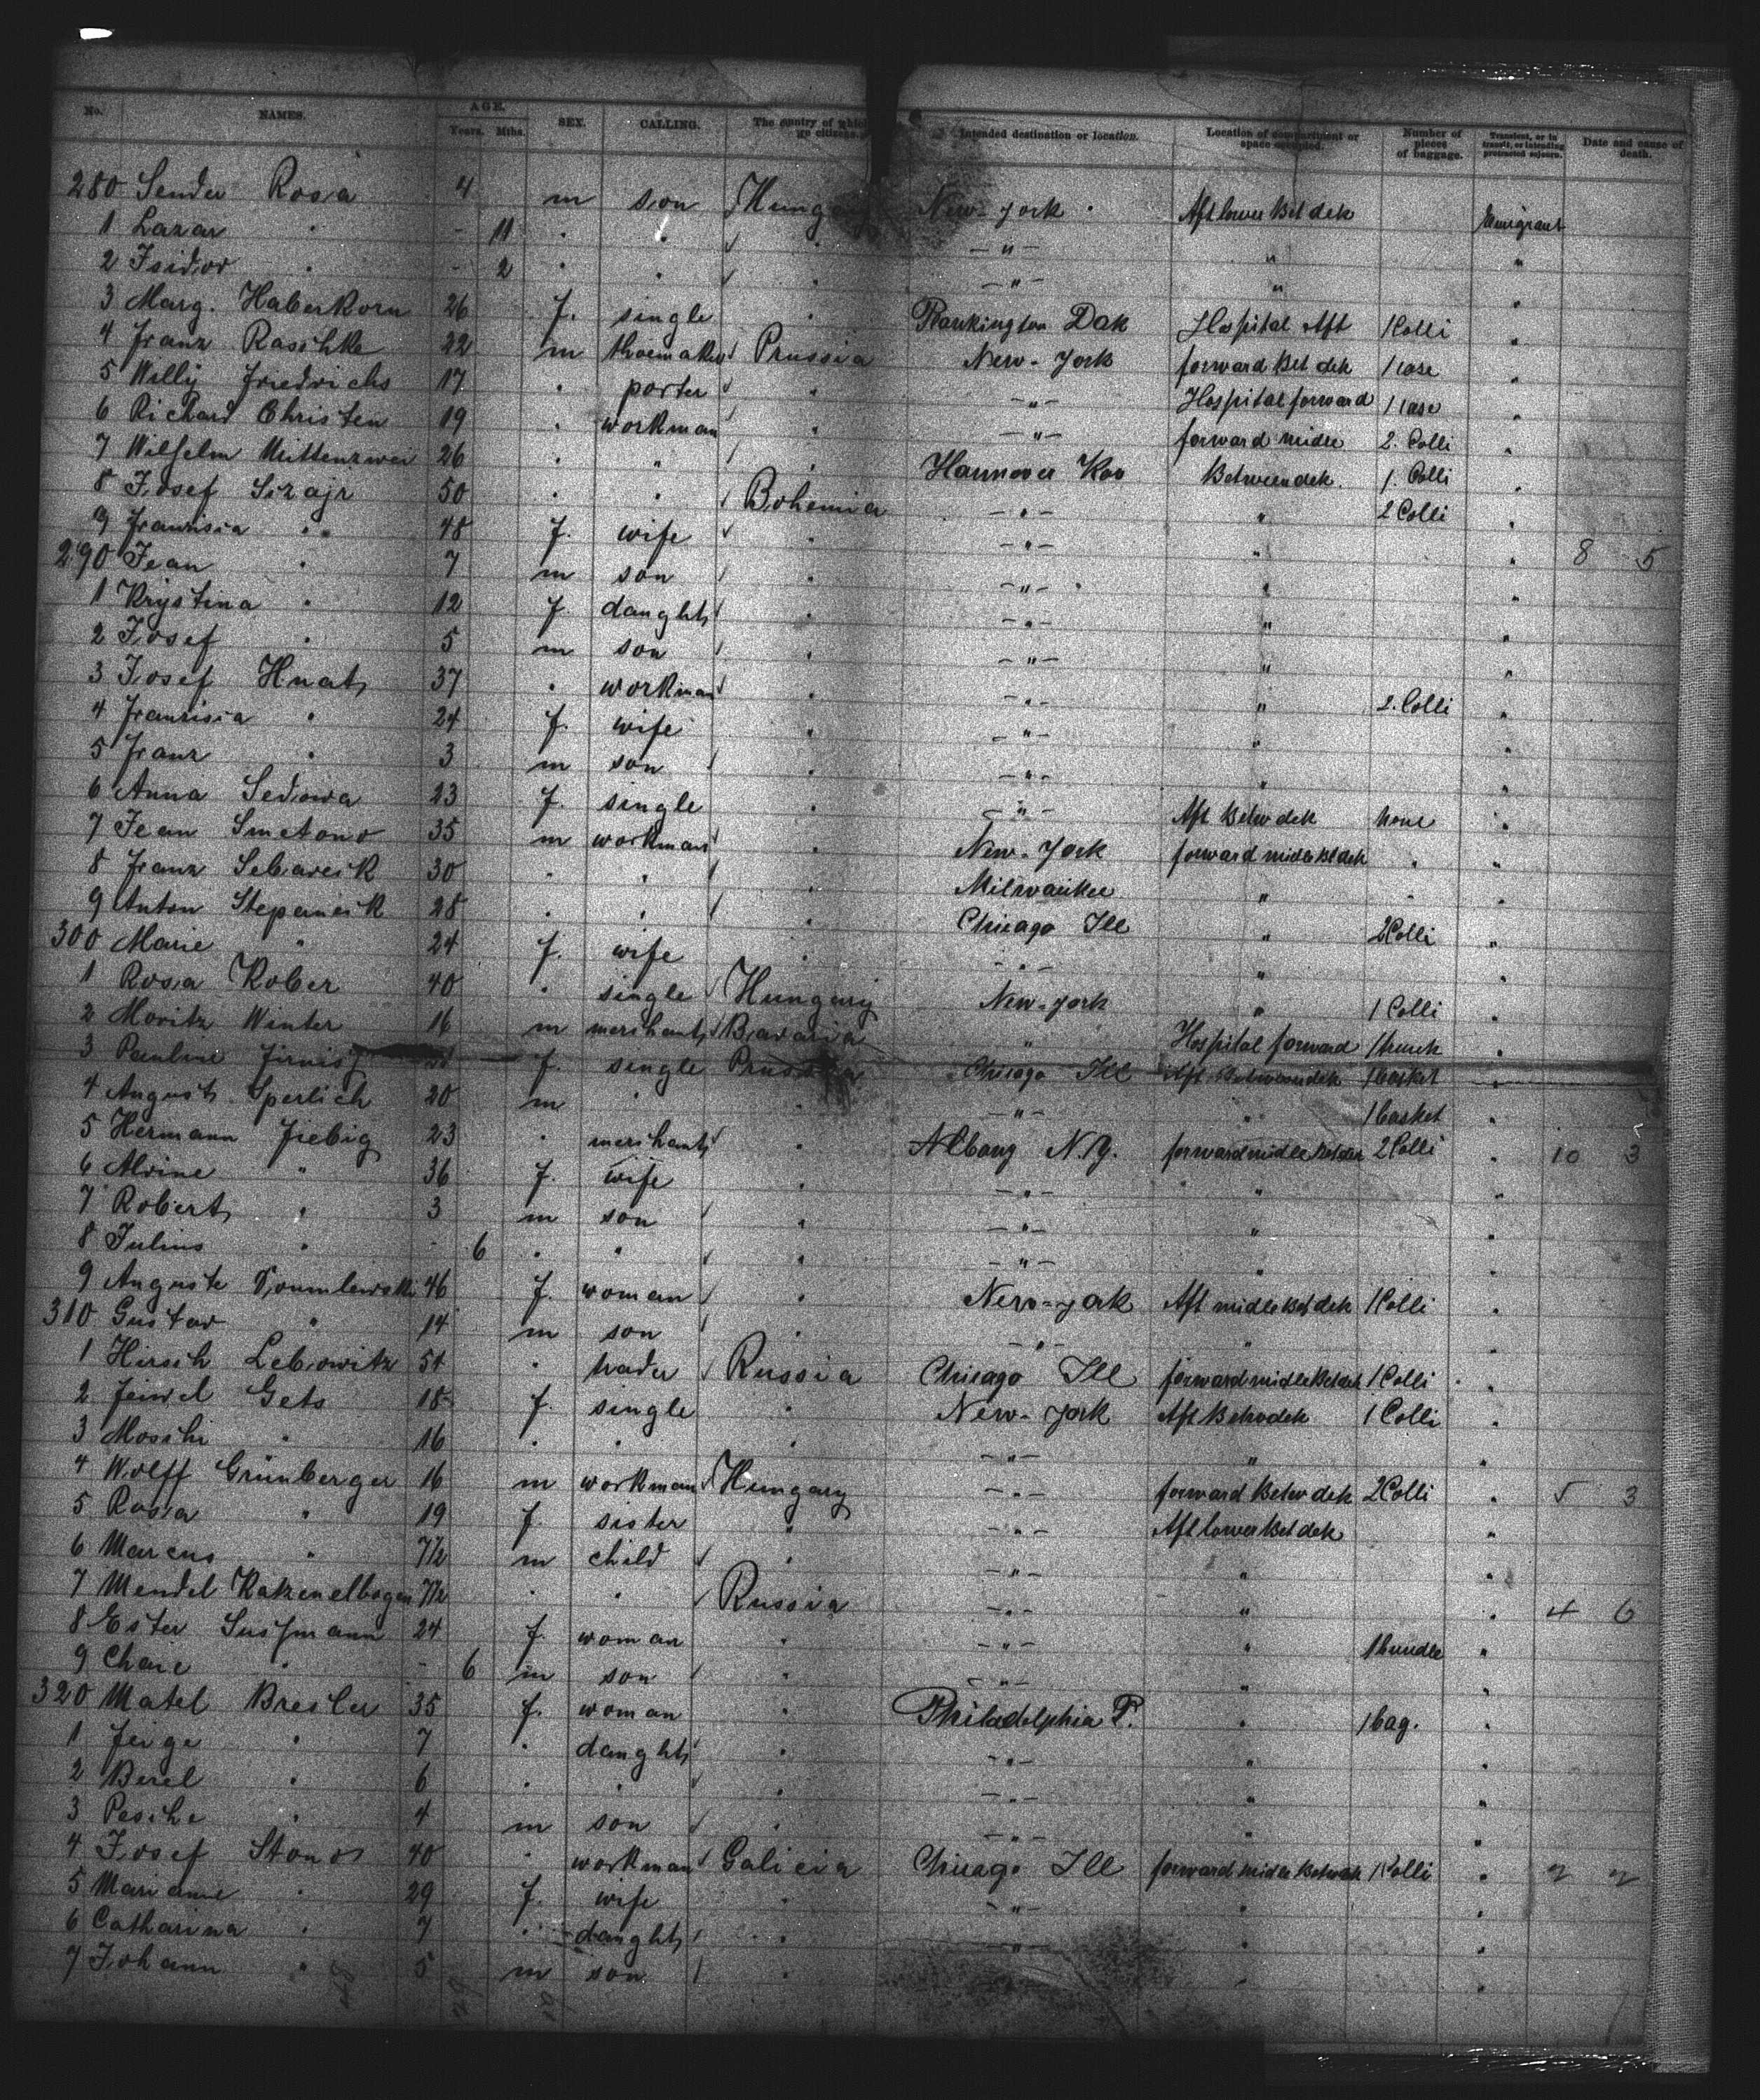 No. NAMES. AGE. Years. Mths. SEX. CALLING. The country of which Intended destination or location. Location of compartment or space occupied. Number of pieces of baggage. Transient, or in transit, or intending protracted sojourn. Date and cause of death.
280 Sender Rosa 4 m son Hungary New-York Aft lower Bet dek Emigrant
1 Lazar " - 11 " " " -"- " "
2 Isidor " - 2 " " " -"- " "
3 Marg. Haberkorn 26 f. single " Plankington Dak Hospital Aft 1 Colli "
4 Franz Raschke 22 m shoemaker Prussia New-York forward Bet dek 1 case "
5 Willy Friedrichs 17 " porter " -"- Hospital forward 1 case "
6 Richard Christen 19 " workman " -"- forward midle 2. Colli "
7 Wilhelm Mittenzwei 26 " " " Hannover Betweendek. 1. Colli "
8 Josef 50 " " Bohemia -"- " 2 Colli "
9 48 f. wife " -"- " " 8 5
290 Jean " 7 m son " -"- " "
1 Krystina " 12 f. daught " -"- " "
2 Josef " 5 m son " -"- " "
3 Josef Hnat 37 " workman " -"- " 2. Colli "
4 " 24 f. wife " -"- " "
5 Franz " 3 m son " -"- " "
6 Anna Sedowa 23 f. single " -"- Aft Betw dek none "
7 Jean Smetono 35 m workman " New-York forward midle Bt dek " "
8 Franz 30 " " " Milwaukee " " "
9 Anton Stepaneik 28 " " " Chicago Ill " 2 Colli "
300 Marie " 24 f. wife " -"- " "
1 Rosa Kober 40 " single Hungary New-York " 1 Colli "
2 Moritz Winter 16 m merchant Bavaria " Hospital forward 1 trunk "
3 Pauline f. single Prussia Chicago Ill Aft Betweendek 1 basket "
4 August Sperlich 20 m " " -"- " 1 basket "
5 Hermann Fiebig 23 " merchant " Albany N.Y. forward midle Bet dek 2 Colli " 10 3
6 Alvine " 36 f. wife " -"- " "
7 Robert " 3 m son " -"- " "
8 Julius " - 6 " " " -"- " "
9 Auguste 46 f. woman " New-York Aft midle Bet dek 1 Colli "
310 Gustav " 14 m son " -"- " "
1 Hirsch Lebowitz 51 " trader Russia Chicago Ill forward midle Bet dek 1 Colli "
2 Feiwel Gets 18 f. single " New-York Aft Betwdek 1 Colli "
3 Moschi " 16 " " " -"- " "
4 Wolff Grünberger 16 m workman Hungary -"- forward Betw dek 2 Colli " 5 3
5 Rosa " 19 f. sister " -"- Aft lower Bet dek "
6 Marcus " 7½ m child " -"- " "
7 Mendel Katzenelbogen 7½ " " Russia -"- " " 4 6
8 Ester Sussmann 24 f. woman " -"- " 1 bundle "
9 Chaie " - 6 m son " -"- " "
320 Matel Bresler 35 f. woman " Philadelphia P. " 1 bag. "
1 Feige " 7 " daught " -"- " "
2 Berel " 6 " " " -"- " "
3 Pesche " 4 m son " -"- " "
4 Josef 40 " workman Galicia Chicago Ill forward midle Betwdek 1 Colli " 2 2
5 Marianne " 29 f. wife " -"- " "
6 Catharina " 7 " daught " -"- " "
7 Johann " 5 m son " " "